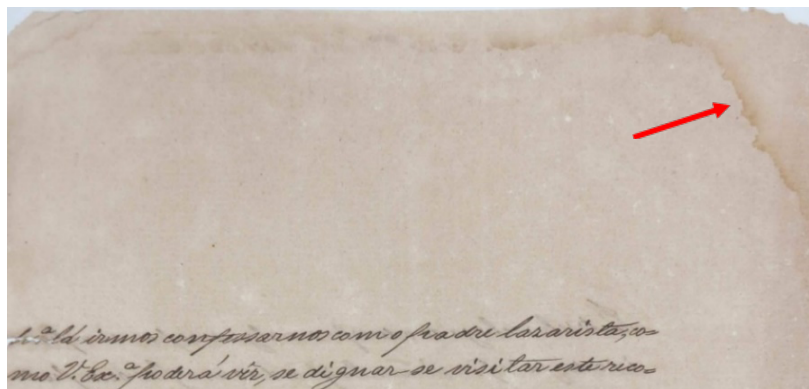 p.ª lá irmos confessarmos com o padre lazarista, co=
mo V. Ex.ª poderá vir, se dignar-se visitar este rico=